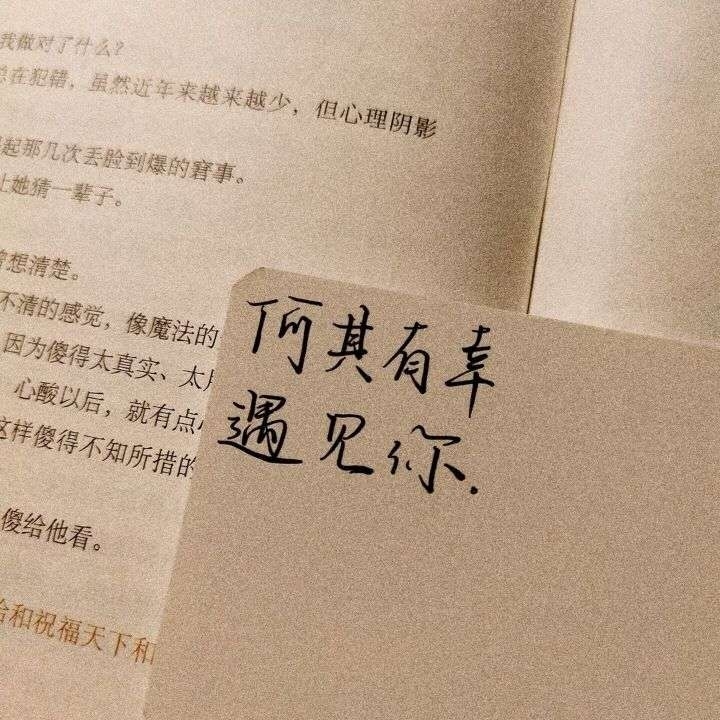 我做对了什么？
在犯错，虽然近年来越来越少，但心理阴影
起那几次丢脸到爆的窘事。
让她猜一辈子。
想清楚。
不清的感觉，像魔法的
因为傻得太真实、太
心酸以后，就有点
这样傻得不知所措的
傻给他看。
和祝福天下和
何其有幸
遇见你.